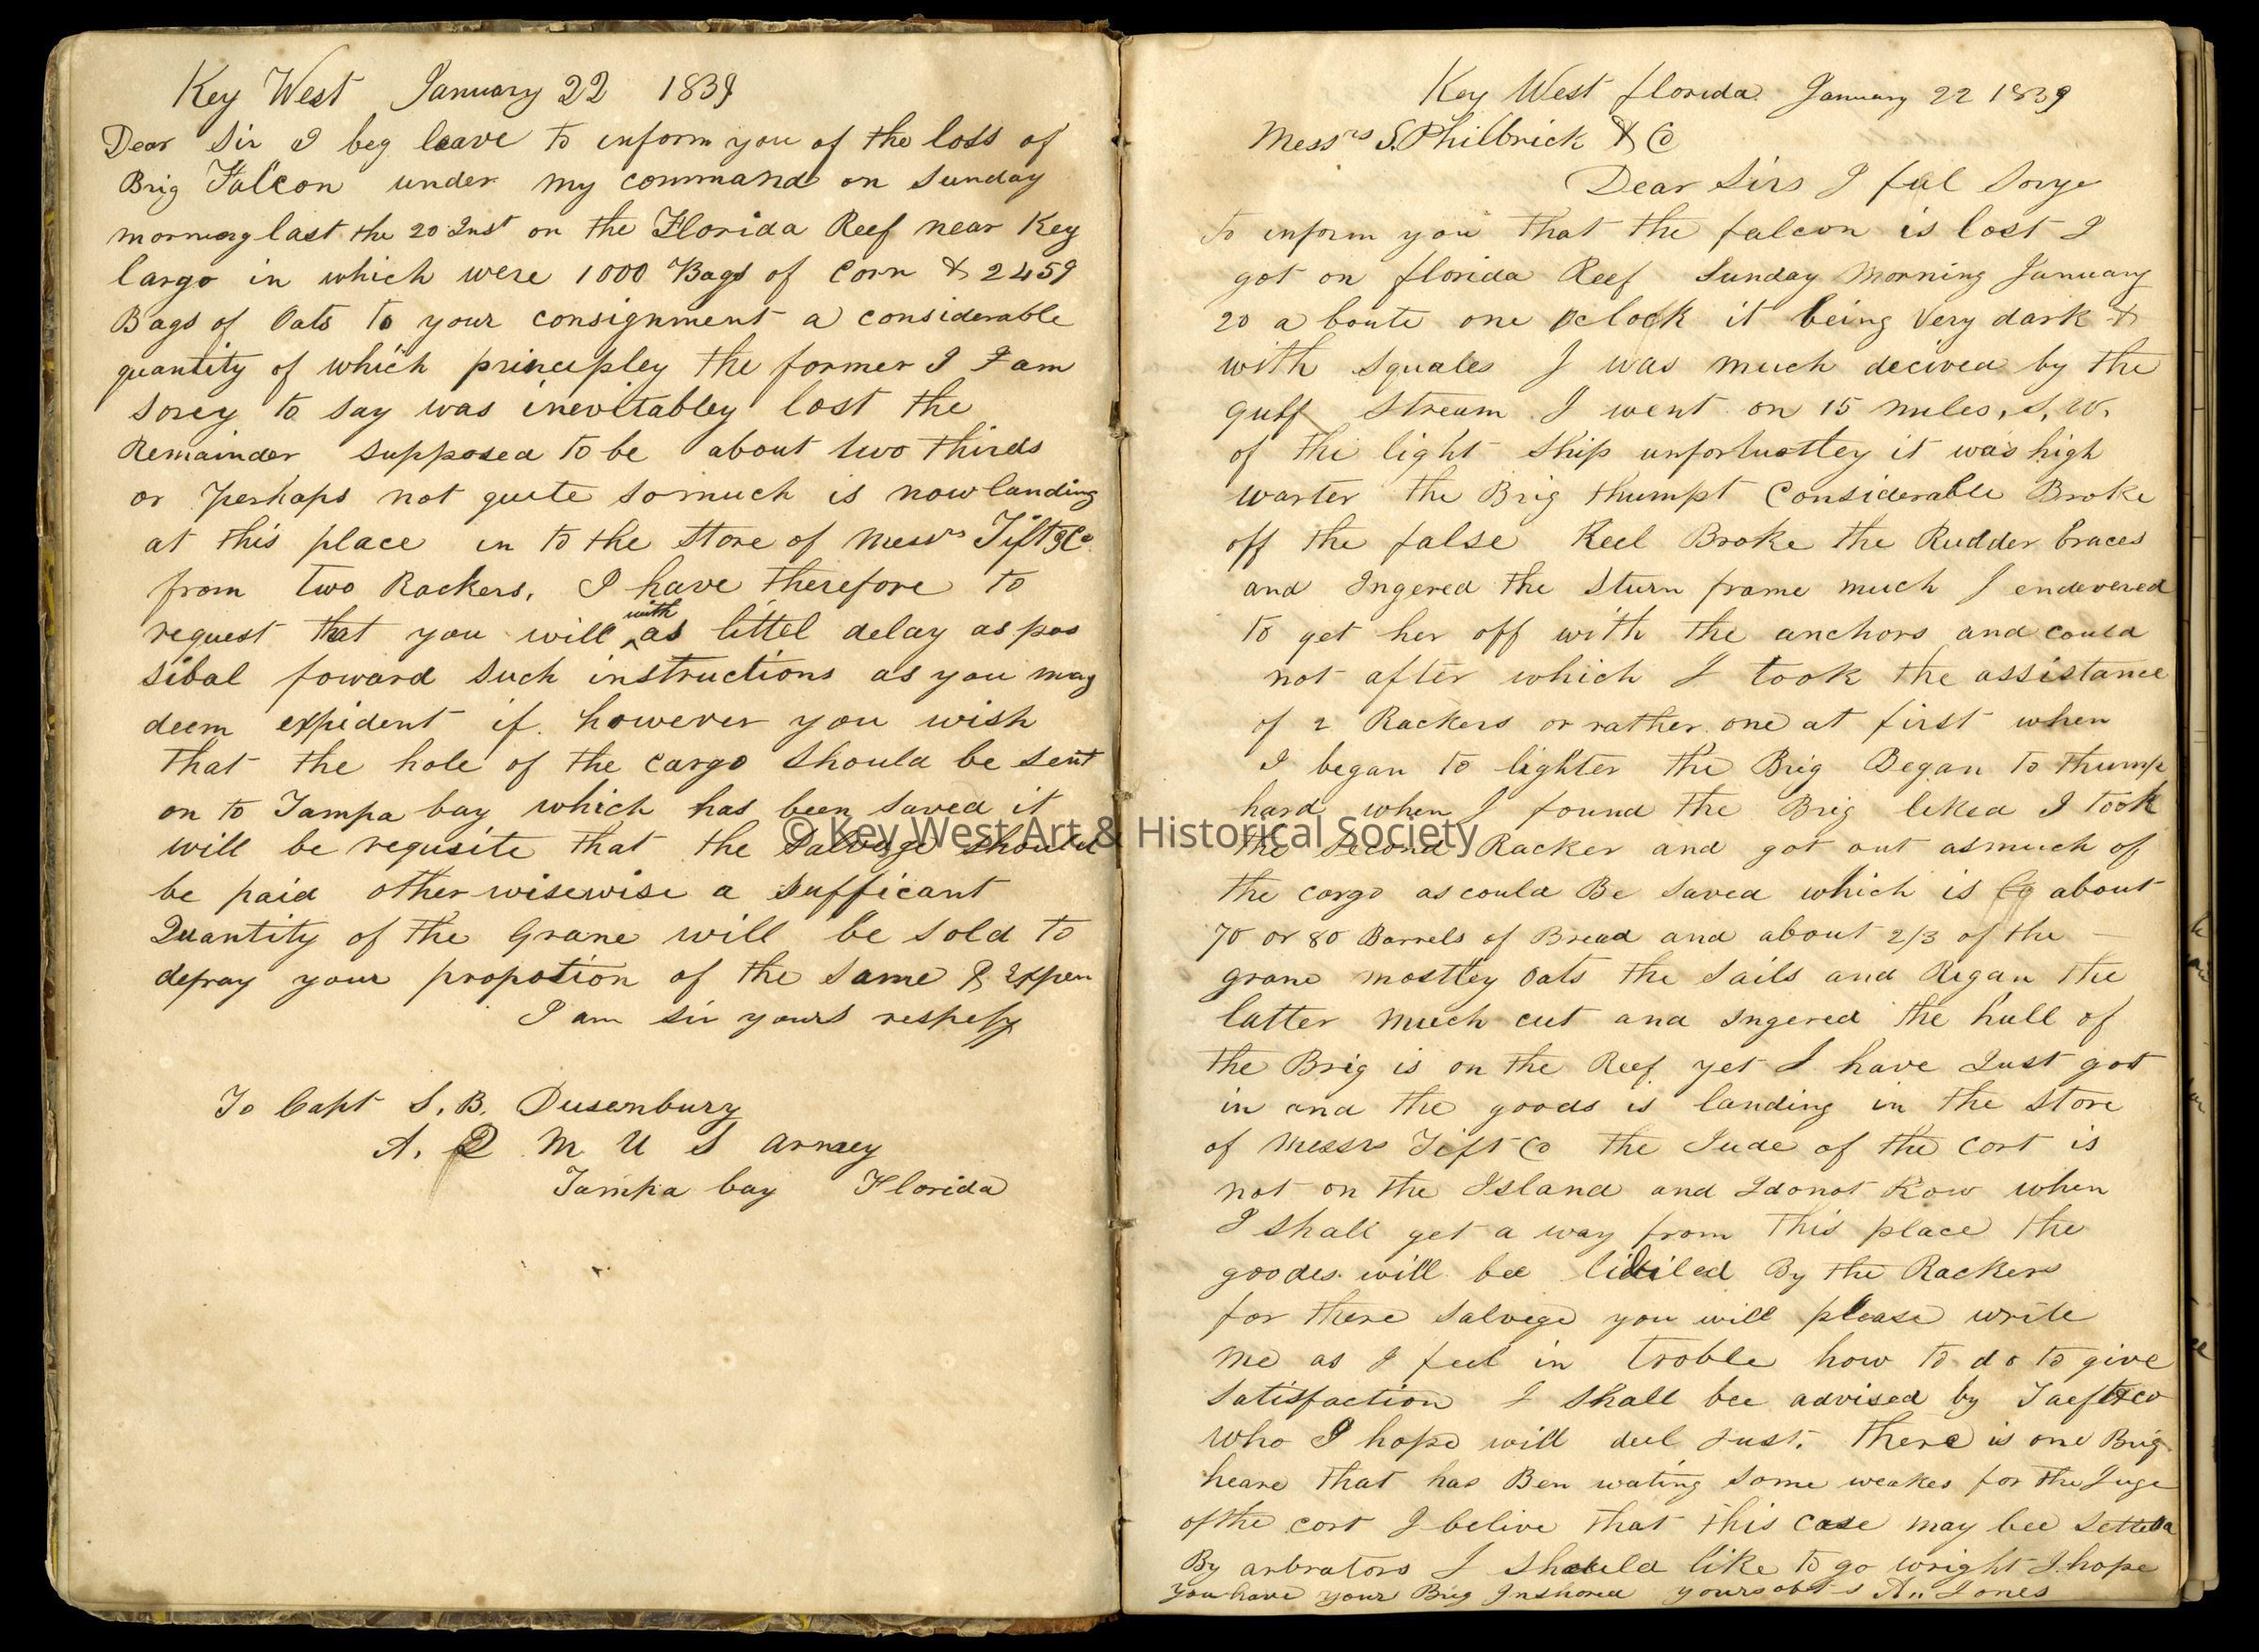 Key West January 22 1839
Dear Sir I beg leave to inform you of the loss of
Brig Falcon under my command on Sunday
morning last the 20 Inst on the Florida Reef near Key
largo in which were 1000 Bags of Corn & 2459
Bags of Oats to your consignment a considerable
quantity of which principley the former I I am
sorey to say was inevitabley lost the
Remainder supposed to be about two thirds
or perhaps not quite somuch is now landing
at this place in to the Store of Messrs Tift & Co
from two Rackers. I have therefore to
request that you will with as littel delay as pos
sibal foward such instructions as you may
deem expident if however you wish
that the hole of the cargo should be sent
on to Tampa bay which has been saved it
will be requisite that the Salvege should
be paid otherwisewise a sufficant
Quantity of the Grane will be sold to
defray your propotion of the same & Expen
I am sir yours respefy
To Capt S. B. Dusenbury
A. Q M U S Armey
Tampa bay Florida
Key West florida January 22 1839
Messrs S. Philbrick & Co
Dear Sirs I ful Sorye
to inform you that the falcon is lost I
got on florida Reef Sunday Morning January
20 a boute one Oclock it being Very dark &
with Squales I was much decived by the
gulf Stream I went on 15 miles, S, W.
of the light Ship unfortuatley it was high
warter the Brig thumpt Considerable Broke
off the false Keel Broke the Rudder braces
and Ingered the Sturn frame much I endevered
to get her off with the anchors and could
not after which I took the assistance
of 2 Rackers or rather one at first when
I began to lighter the Brig Began to thump
hard when I found the Brig liked I took
the Second Racker and got out asmuch of
the cargo as could Be saved which is about
70 or 80 Barrels of Bread and about 2/3 of the
grane mostley Oats the Sails and Rigan the
latter much cut and Ingered the hull of
the Brig is on the Reef yet I have Just got
in and the goods is landing in the Store
of Messrs Tift Co the Jude of the Cort is
not on the Island and I do not Kow when
I shall get a way from this place the
goodes will bee By the Rackers
for there Salvege you will please write
me as I feel in troble how to do to give
Satisfaction I shall bee advised by Taeft & co
who I hope will deel Just. There is one Brig
heare that has Ben wating some weakes for the Juge
of the cort I belive that this case may bee Settled
By arbrators I should like to go wright I hope
you have your Brig Inshored yours obt s A. Jones
© Key West Art & Historical Society